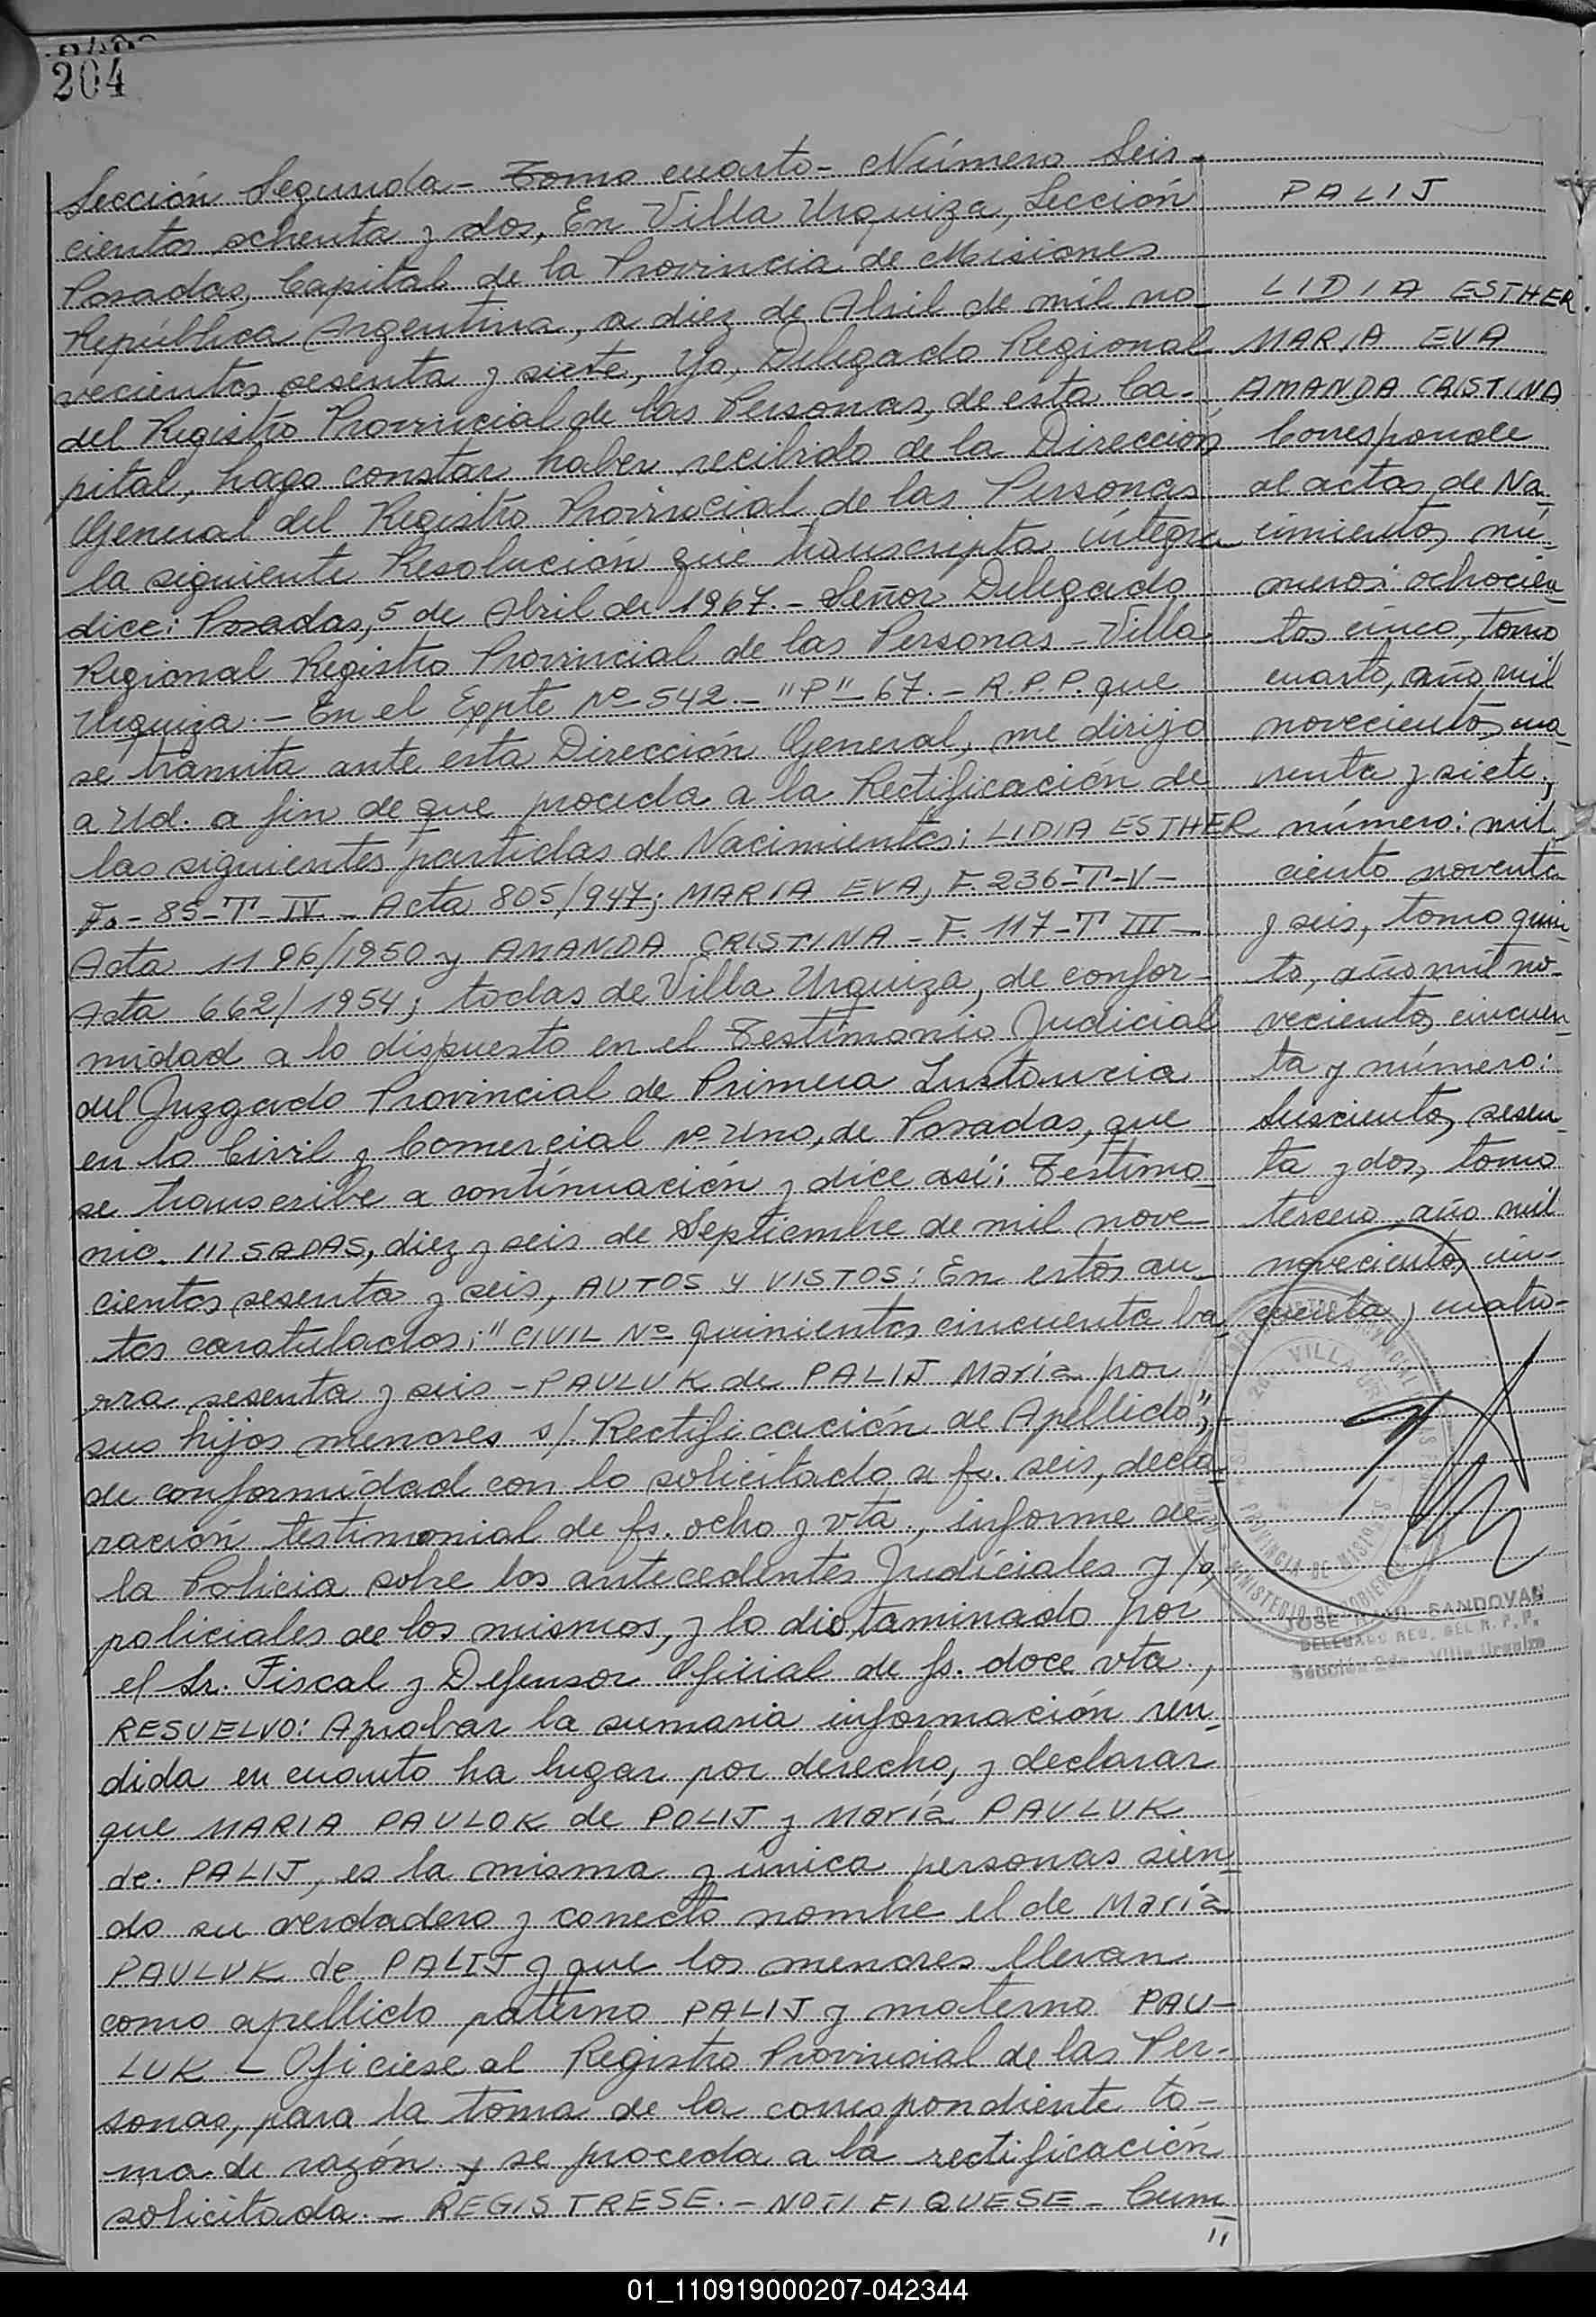 204
Sección Segunda - Tomo cuarto - Número Seis-
cientos ochenta y dos, En Villa Urquiza, Sección
Posadas, Capital de la Provincia de Misiones
República Argentina, a diez de Abril de mil no-
vecientos sesenta y siete, Yo, Delegado Regional
del Registro Provincial de las Personas, de esta Ca-
pital, hago constar haber recibido de la Dirección
General del Registro Provincial de las Personas
la siguiente Resolución que transcripta integra
dice: Posadas, 5 de Abril de 1967.- Señor Delegado
Regional Registro Provincial de las Personas - Villa
Urquiza.- En el Expte Nº 542.- "P" - 67.- R.P.P. que
se tramita ante esta Dirección General, me dirijo
a Ud. a fin de que proceda a la Rectificación de
las siguientes partidas de Nacimientos: LIDIA ESTHER
Fº - 85 - T - IV - Acta 805/947; MARIA EVA, F. 236 - T - V -
Acta 1196/1950 y AMANDA CRISTINA - F. 117 - T III -
Acta 662/1954; todas de Villa Urquiza, de confor-
midad a lo dispuesto en el Testimonio Judicial
del Juzgado Provincial de Primera Instancia
en lo Civil y Comercial Nº Uno, de Posadas, que
se transcribe a continuación y dice así: Testimo-
nio. /// SADAS, diez y seis de Septiembre de mil nove-
cientos sesenta y seis, AUTOS Y VISTOS: En estos au-
tos caratulados: "CIVIL Nº quinientos cincuenta ba-
rra sesenta y seis - PAULUK de PALIJ María por
sus hijos menores s/ Rectificación de Apellido",-
de conformidad con lo solicitado a fs. seis, decla-
ración testimonial de fs. ocho y vta., informe de
la Policia sobre los antecedentes Judiciales y/o,
policiales de los mismos, y lo dictaminado por
el Sr. Fiscal y Defensor Oficial de fs. doce vta.,
RESUELVO: Aprobar la sumaria información ren-
dida en cuanto ha lugar por derecho, y declarar
que MARIA PAULOK de POLIJ y María PAULUK
de. PALIJ, es la misma y única personas sien-
do su verdadero y correcto nombre el de María
PAULUK de PALIJ y que los menores llevan
como apellido paterno PALIJ y materno PAU-
LUK - Oficiese al Registro Provincial de las Per-
sonas, para la toma de la correspondiente to-
ma de razón y se proceda a la rectificación
solicitada.- REGISTRESE.- NOTIFIQUESE - Cum
//
PALIJ
LIDIA ESTHER.
MARIA EVA
AMANDA CRISTINA
Corresponde
al actas de Na-
cimientos, nú-
meros: ochocien-
tos cinco, tomo
cuarto, año mil
novecientos cua-
renta y siete,
número: mil
ciento noventa
y seis, tomo quin-
to, año mil no-
vecientos cincuen-
ta y número:
Seiscientos sesen-
ta y dos, tomo
tercero año mil
novecientos cin-
cuenta y cuatro-
VILLA URQ
PROVINCIA DE MISIONES
MINISTERIO DE GOBIERNO
SANDOVAL
DELEGADO REG. DEL R.P.P.
Sección 2da. Villa Urquiza
01_110919000207-042344